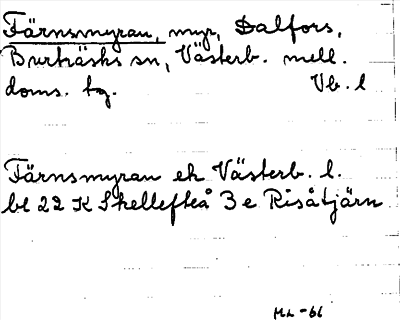 Färnsmyran, myr, Dalfors,
Burträsks sn, Västerb. mell.
doms. tg. Vb. l
Färnsmyran ek Västerb. l.
bl 22 K Skellefteå 3 e Risåtjärn
ML -66